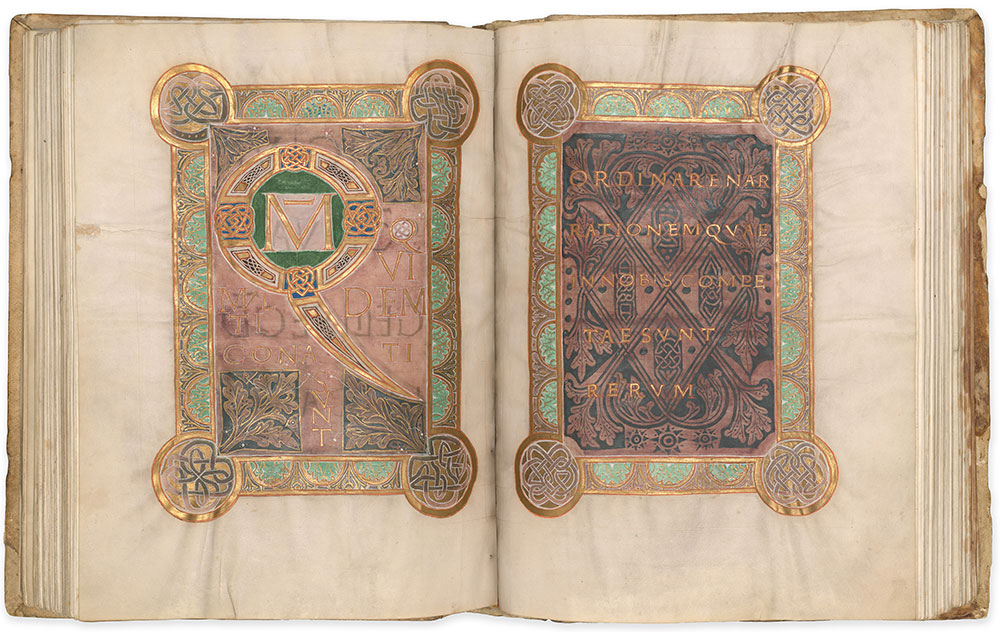 QM̄
Q
VI
DEM
MVL
TI
CONA
TI
SVNT
ORDINARENAR
RATIONEMQVAE
INNOBISCOMPLE
TAESVNT
RERVM